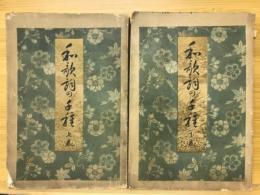 和歌詞の千種 上巻
和歌詞の千種 下巻